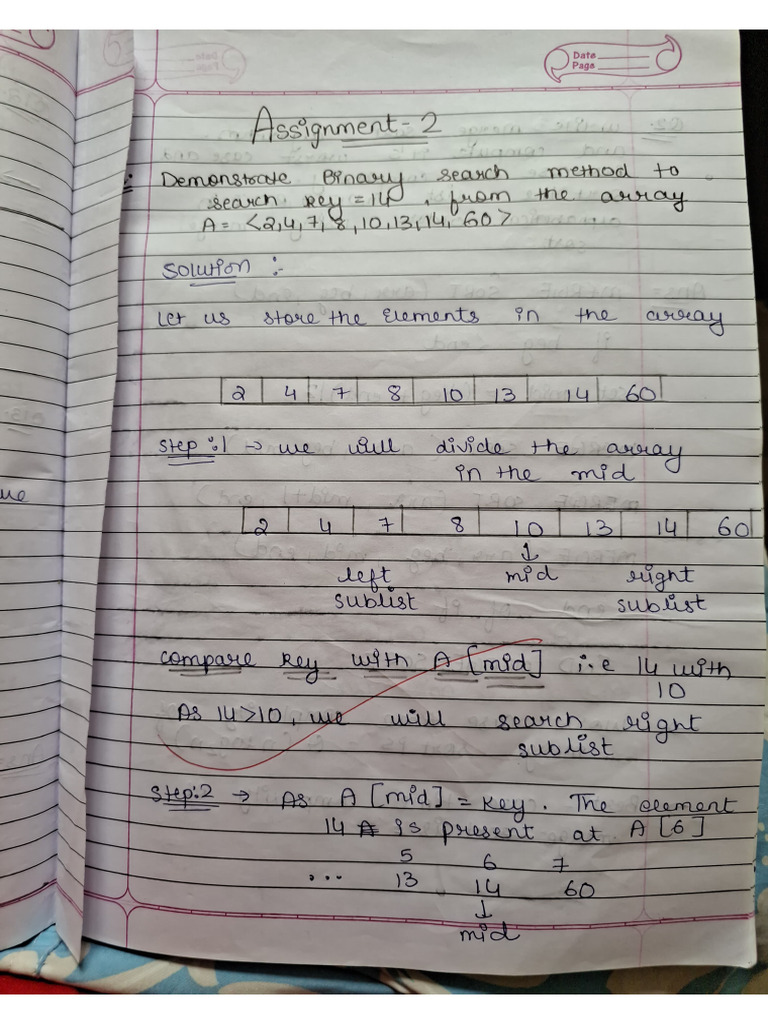 Data
Page
Assignment-2
Demonstrate Binary search method to
search key = 14, from the array
A = <2,4,7,8,10,13,14,60>
Solution :-
Let us store the Elements in the array
2 4 7 8 10 13 14 60
step:1 → we will divide the array
in the mid
2 4 7 8 10 13 14 60
↓
left mid right
sublist sublist
compare key with A [mid] i.e 14 with
10
As 14>10, we will search right
sublist
Step:2 → As A [mid] = key. The element
14 is present at A [6]
5 6 7
... 13 14 60
↓
mid